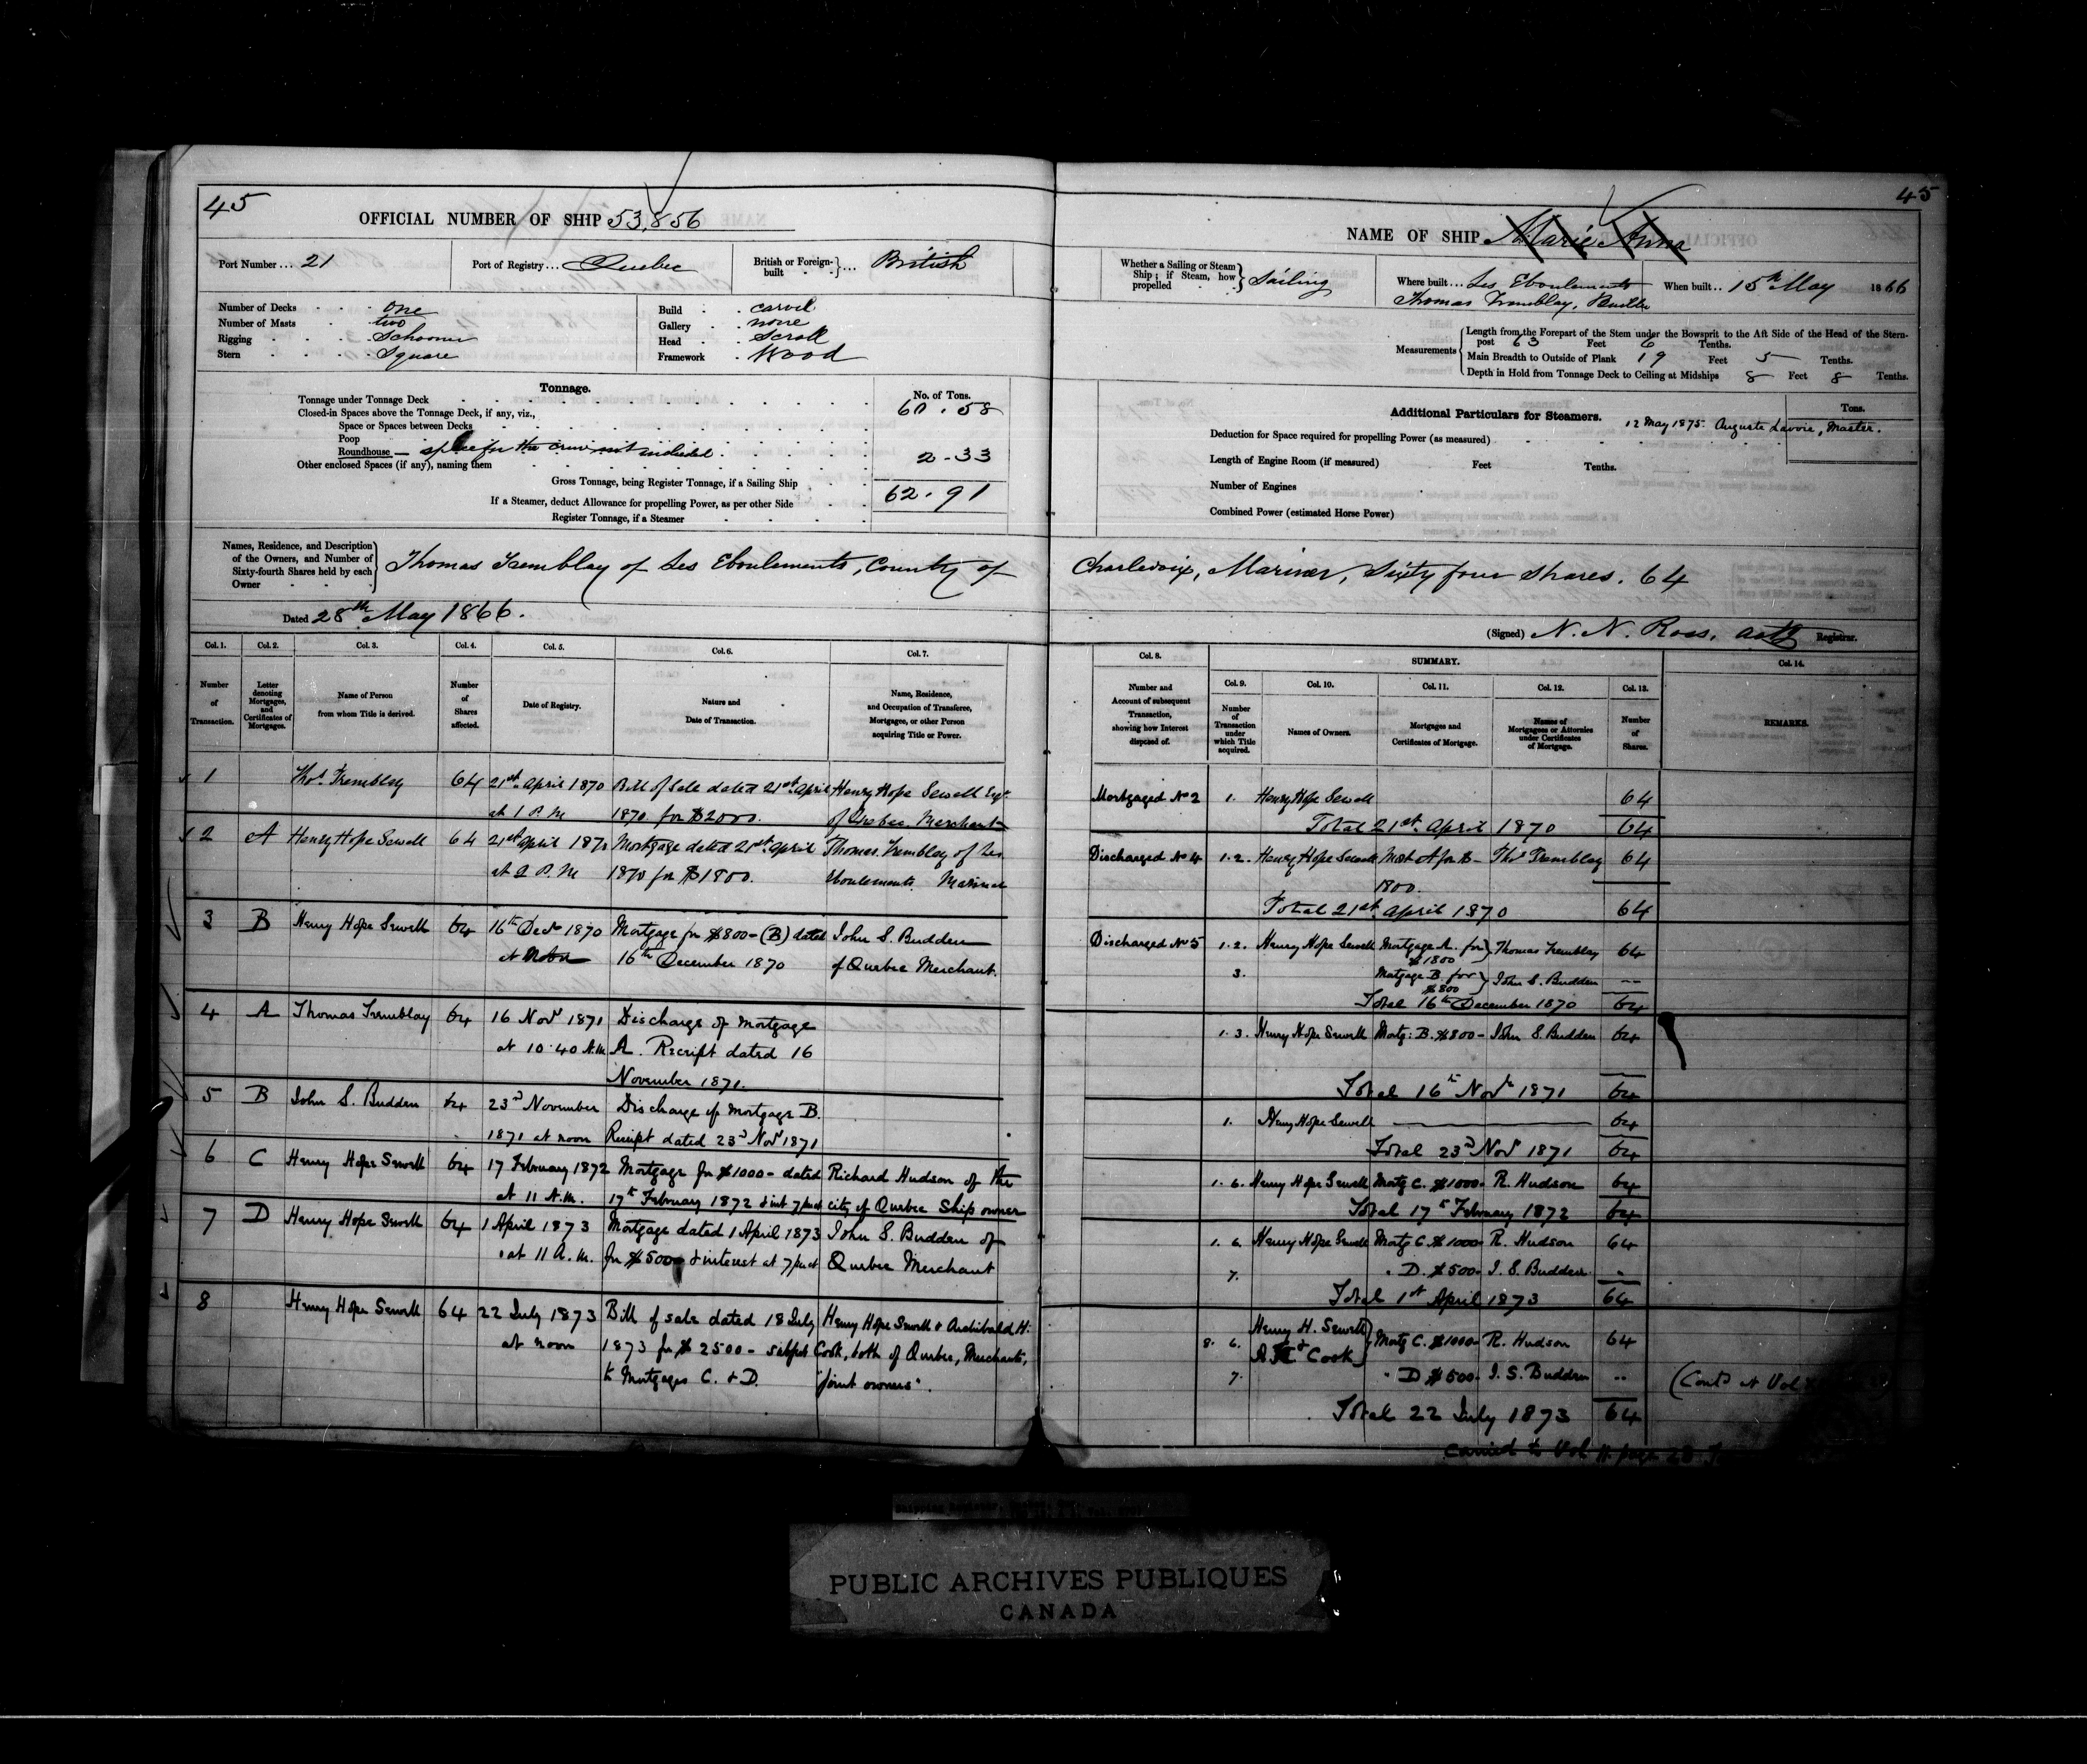 45
OFFICIAL NUMBER OF SHIP 53,856
Port Number... 21
Port of Registry... Quebec
British or Foreign-built }... British
Number of Decks one
Number of Masts two
Rigging Schooner
Stern Square
Build carvel
Gallery none
Head Scroll
Framework Wood
Tonnage.
No. of Tons.
Tonnage under Tonnage Deck 60.58
Closed-in Spaces above the Tonnage Deck, if any, viz.,
Space or Spaces between Decks
Poop
Roundhouse — space for the crew not included 2.33
Other enclosed Spaces (if any), naming them
Gross Tonnage, being Register Tonnage, if a Sailing Ship 62.91
If a Steamer, deduct Allowance for propelling Power, as per other Side
Register Tonnage, if a Steamer
45
NAME OF SHIP Marie Anna
Whether a Sailing or Steam Ship; if Steam, how propelled } Sailing
Where built... Les Eboulements
Thomas Tremblay, Builder
When built.. 15th May 1866
Measurements
Length from the Forepart of the Stem under the Bowsprit to the Aft Side of the Head of the Stern-
post 63 Feet 6 Tenths.
Main Breadth to Outside of Plank 19 Feet 5 Tenths.
Depth in Hold from Tonnage Deck to Ceiling at Midships 8 Feet 8 Tenths.
Additional Particulars for Steamers.
Tons.
12 May 1875. Auguste Lavoie, Master.
Deduction for Space required for propelling Power (as measured)
Length of Engine Room (if measured) Feet Tenths.
Number of Engines
Combined Power (estimated Horse Power)
Names, Residence, and Description of the Owners, and Number of Sixty-fourth Shares held by each Owner
Thomas Tremblay of Les Eboulements, County of Charlevoix, Mariner, Sixty four Shares. 64
Dated 28th May 1866.
(Signed) N. N. Ross, actg Registrar.
Col. 1. Col. 2. Col. 3. Col. 4. Col. 5. Col. 6. Col. 7.
Number of Transaction.
Letter denoting Mortgages, and Certificates of Mortgages.
Name of Person from whom Title is derived.
Number of Shares affected.
Date of Registry.
Nature and Date of Transaction.
Name, Residence, and Occupation of Transferee, Mortgagee, or other Person acquiring Title or Power.
1 Thos Tremblay 64 21st April 1870 Bill of Sale dated 21st April Henry Hope Sewell Esqr.
at 1 P.M 1870 for $2000. of Quebec Merchant
2 A Henry Hope Sewell 64 21st April 1870 Mortgage dated 21st April Thomas Tremblay of Les
at 2 P.M 1870 for $1800. Eboulements Mariner
3 B Henry Hope Sewell 64 16th Decr 1870 Mortgage for $800 - (B) dated John S. Budden
at Noon 16th December 1870 of Quebec Merchant.
4 A Thomas Tremblay 64 16 Novr 1871 Discharge of Mortgage
at 10.40 A.M. A. Receipt dated 16
November 1871.
5 B John S. Budden 64 23rd November Discharge of Mortgage B.
1871 at noon Receipt dated 23rd Novr 1871
6 C Henry Hope Sewell 64 17 February 1872 Mortgage for $1000 - dated Richard Hudson of the
at 11 A.M. 17th February 1872 & int 7 per ct city of Quebec Ship owner
7 D Henry Hope Sewell 64 1 April 1873 Mortgage dated 1 April 1873 John S. Budden of
at 11 A.M. for $500 & interest at 7 per ct Quebec Merchant
8 Henry Hope Sewell 64 22 July 1873 Bill of sale dated 18 July Henry Hope Sewell & Archibald H.
at noon 1873 for $2500 - subject Cook, both of Quebec, Merchants,
to Mortgages C. & D. "joint owners".
Col. 8. SUMMARY. Col. 14.
Col. 9. Col. 10. Col. 11. Col. 12. Col. 13.
Number and Account of subsequent Transaction, showing how Interest disposed of.
Number of Transaction under which Title acquired.
Names of Owners.
Mortgages and Certificates of Mortgage.
Names of Mortgagees or Attornies under Certificates of Mortgage.
Number of Shares.
REMARKS.
Mortgaged No 2 1. Henry Hope Sewell 64
Total 21st April 1870 64
Discharged No 4 1.2. Henry Hope Sewell Mort A for $ - Thos Tremblay 64
1800.
Total 21st April 1870 64
Discharged No 5 1.2. Henry Hope Sewell Mortgage A. for $1800 } Thomas Tremblay 64
3. Mortgage B. for $800 } John S. Budden --
Total 16th December 1870 64
1.3. Henry Hope Sewell Mortg: B. $800 - John S. Budden 64
Total 16th Novr 1871 64
1. Henry Hope Sewell 64
Total 23rd Novr 1871 64
1.6. Henry Hope Sewell Mortg C. $1000 - R. Hudson 64
Total 17th February 1872 64
1.6. Henry Hope Sewell Mortg C. $1000 - R. Hudson 64
7. " D. $500 - J. S. Budden "
Total 1st April 1873 64
8. 6. Henry H. Sewell & A. H. Cook } Mortg C. $1000 - R. Hudson 64
7. " D $500 - J. S. Budden "
(Contd at Vol
Total 22 July 1873 64
Carried to Vol page 28
PUBLIC ARCHIVES PUBLIQUES
CANADA